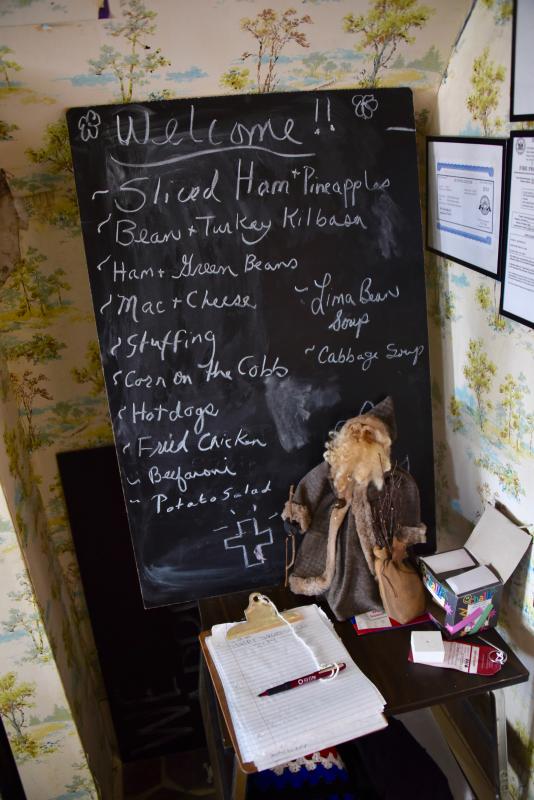 Welcome!!
~ Sliced Ham + Pineapples
~ Bean + Turkey Kilbasa
~ Ham + Green Beans
~ Mac + Cheese
~ Stuffing
~ Corn on the Cobb
~ Hotdogs
~ Fried Chicken
~ Beefaroni
~ Potato Salad
~ Lima Bean
Soup
~ Cabbage Soup
WE